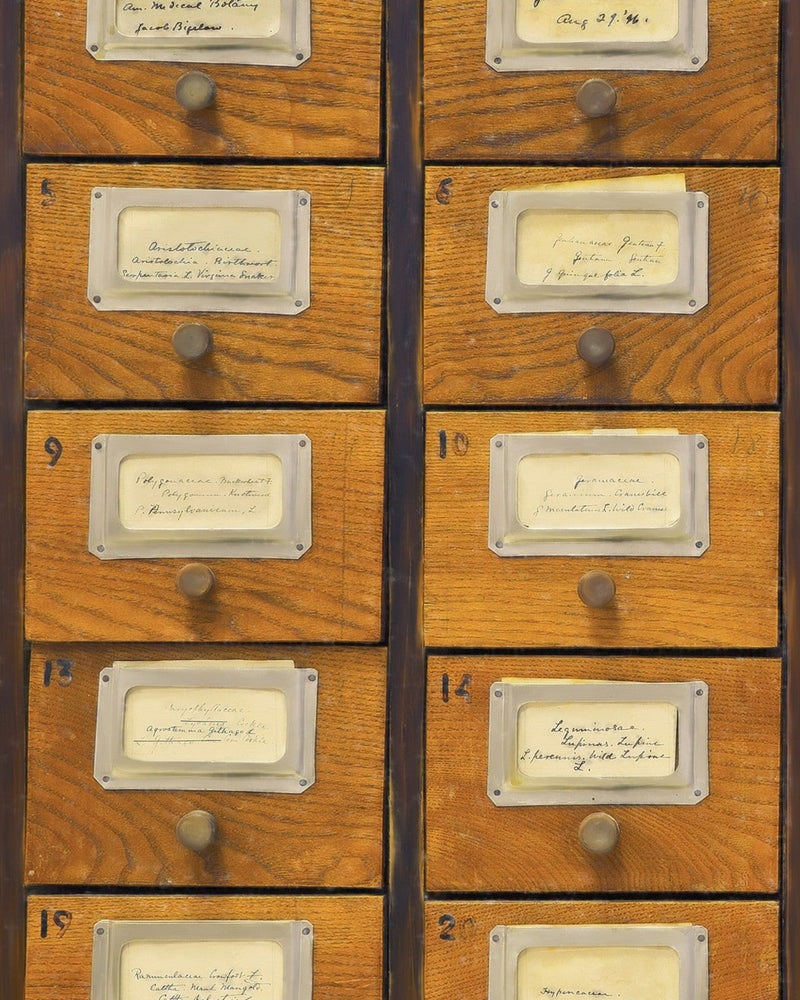 Am. Medical Botany
Jacob Bigelow.
Aug 29.'16.
5
Aristolochiaceae.
Aristolochia. Birthwort.
Serpentaria L. Virginia Snaker
6
Gentianaceae Gentian f.
Gentiana Gentian
G. Quinque folia L.
9
Polygonaceae. Buckwheat F.
Polygonum. Knotweed
P. Pennsylvanicum, L.
10
Geraniaceae.
Geranium. Cranesbill
G Maculatum L. Wild Cranes
13
Caryophyllaceae
Cockle
Agrostemma Githago L.
Githago Corn Cockle
14
Leguminosae.
Lupinus. Lupine
L. perennis. Wild Lupine
L.
19
Ranunculaceae Crowfoot F.
Caltha. Marsh Marigold.
Caltha
20
Hypericaceae.